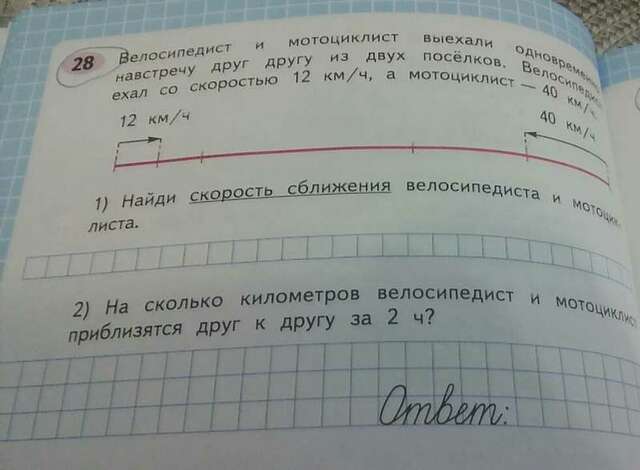 28 Велосипедист и мотоциклист выехали одновременно
навстречу друг другу из двух посёлков. Велосипедист
ехал со скоростью 12 км/ч, а мотоциклист — 40 км/ч.
12 км/ч 40 км/ч
1) Найди скорость сближения велосипедиста и мотоцик-
листа.
2) На сколько километров велосипедист и мотоциклист
приблизятся друг к другу за 2 ч?
Ответ: